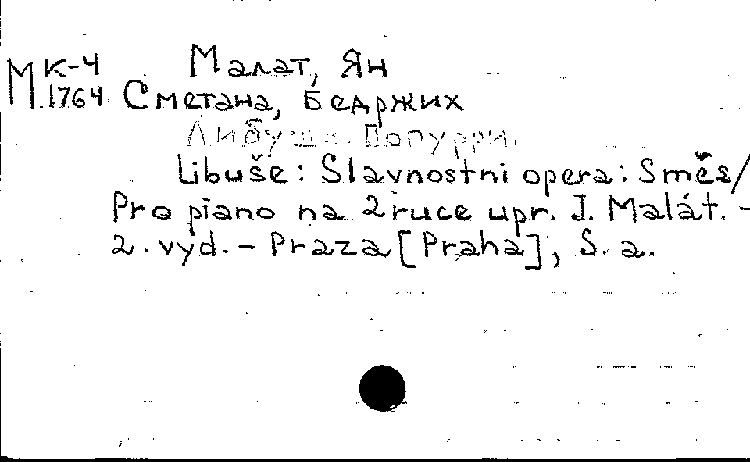 М К-4 Малат, Ян
М.1764 Сметана, Бедржих
Либуше. Попурри.
Libuše: Slavnostni opera: Směs/
Pro piano na 2 ruce upr. J. Malát. –
2. vyd. – Praza [Praha], S. a.